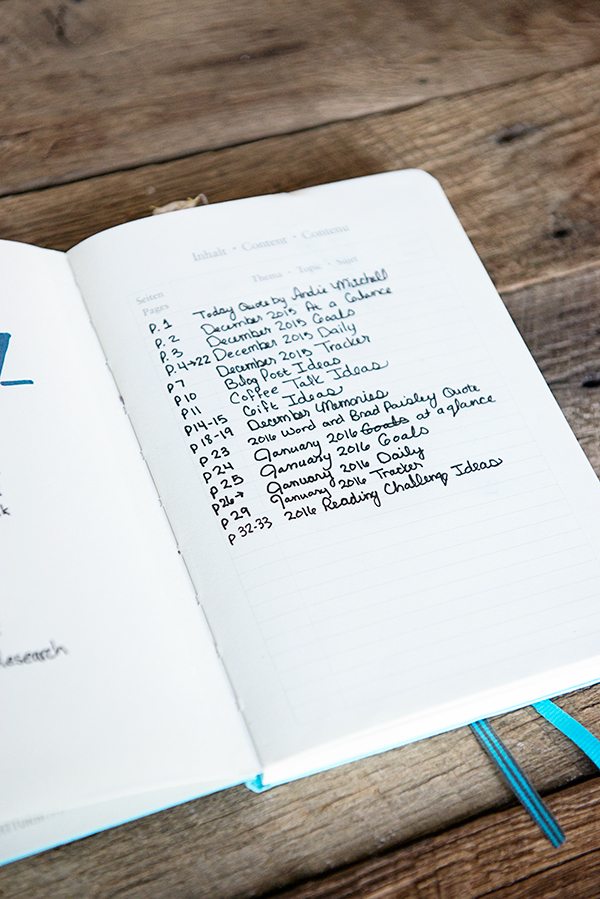 Inhalt · Content · Contenu
Seiten Thema · Topic · Sujet
Pages
P. 1 Today Quote by Andie Mitchell
P. 2 December 2015 At a Glance
P. 3 December 2015 Goals
P. 4→22 December 2015 Daily
P7 December 2015 Tracker
P10 Blog Post Ideas
P11 Coffee Talk Ideas
P14-15 Gift Ideas
P18-19 December Memories
P 23 2016 Word and Brad Paisley Quote
P 24 January 2016 Goals at a glance
P 25 January 2016 Goals
P26→ January 2016 Daily
P 29 January 2016 Tracker
P 32-33 2016 Reading Challeng Ideas